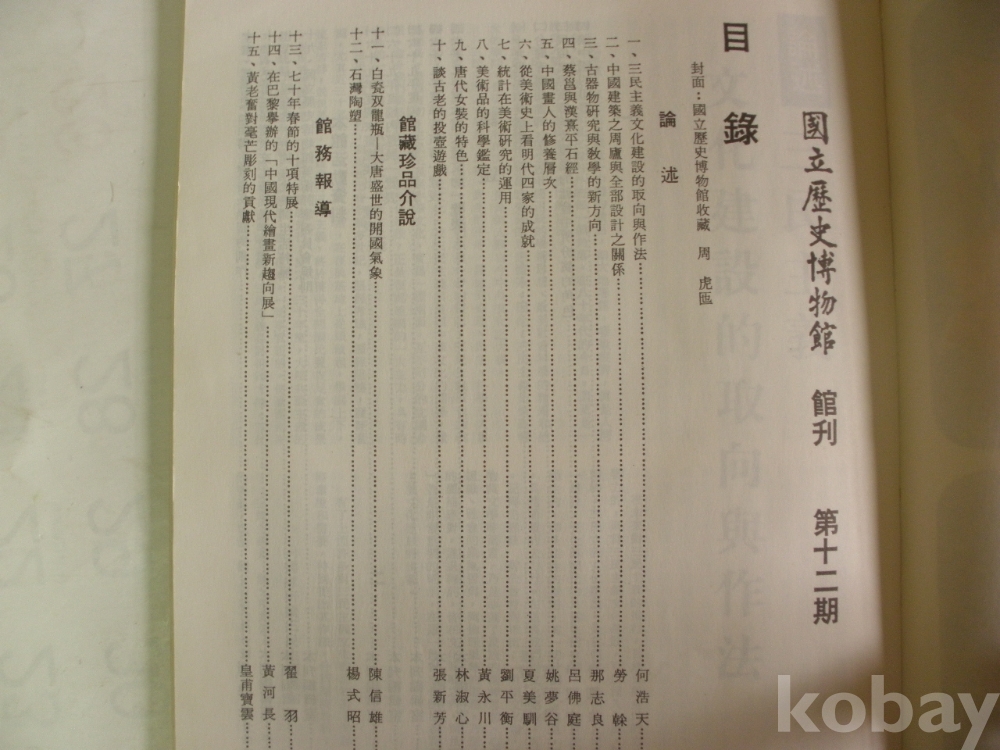 國立歷史博物館 館刊 第十二期
目錄
封面：國立歷史博物館收藏 周 虎匜
論述
一、三民主義文化建設的取向與作法 何浩天
二、中國建築之周廬與全部設計之關係 勞榦
三、古器物研究與教學的新方向 那志良
四、蔡邕與漢熹平石經 呂佛庭
五、中國畫人的修養層次 姚夢谷
六、從美術史上看明代四家的成就 夏美馴
七、統計在美術研究的運用 劉平衡
八、美術品的科學鑑定 黃永川
九、唐代女裝的特色 林淑心
十、談古老的投壺遊戲 張新芳
館藏珍品介說
十一、白瓷双龍瓶—大唐盛世的開國氣象 陳信雄
十二、石灣陶塑 楊式昭
館務報導
十三、七十年春節的十項特展 翟羽
十四、在巴黎舉辦的「中國現代繪畫新趨向展」 黃河長
十五、黃老奮對毫芒彫刻的貢獻 皇甫寶雲
kobay